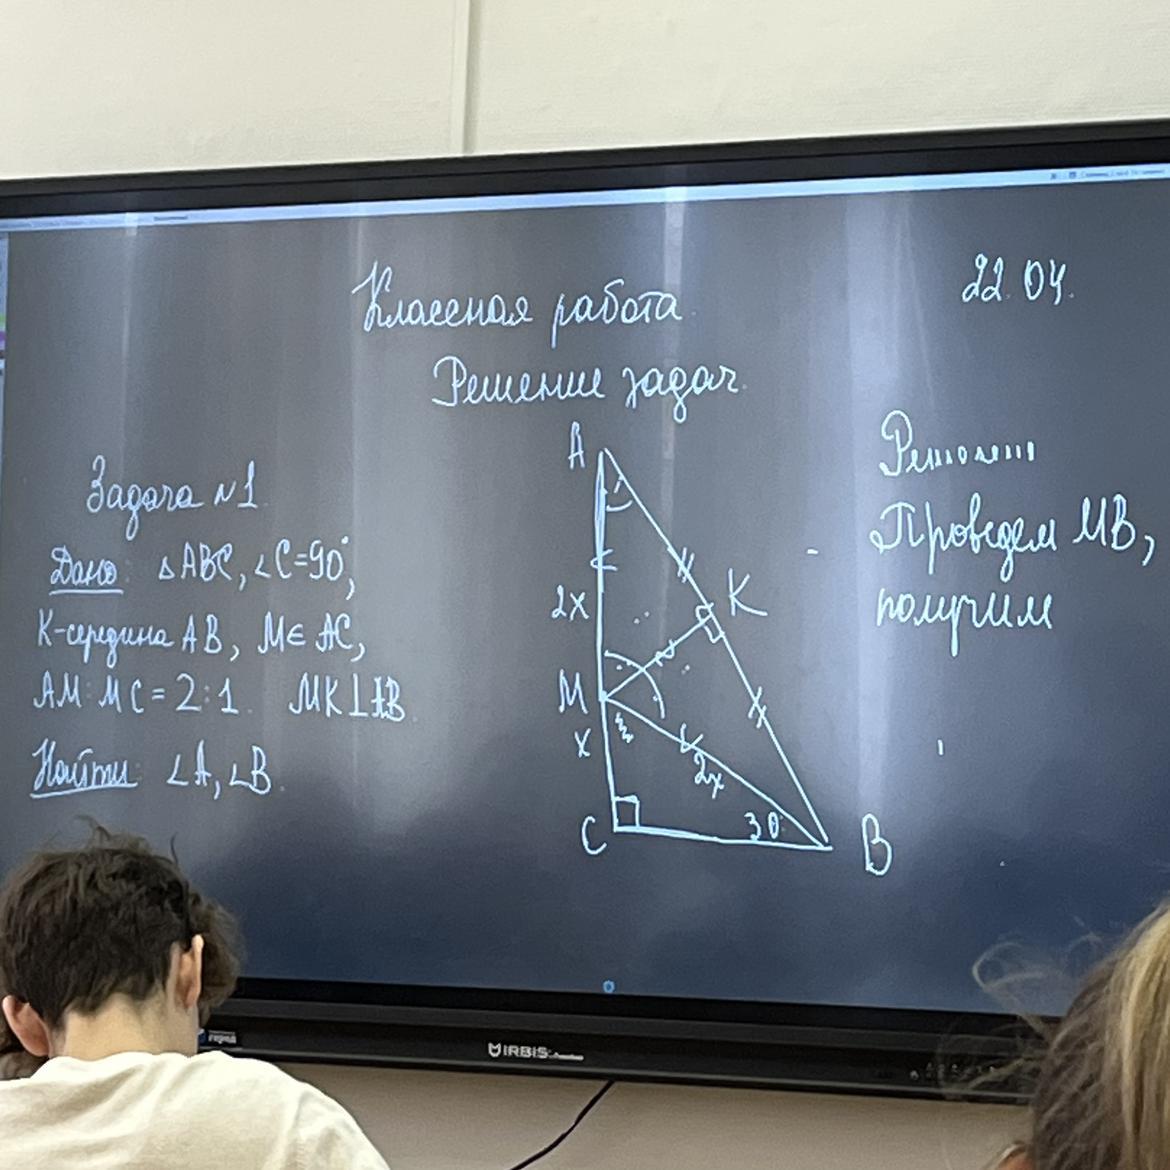 Классная работа
22.04.
Решение задач.
Задача №1
Дано: △ABC, ∠C=90°,
K-середина AB, M∈ AC,
AM:MC=2:1. MK⊥AB.
Найти: ∠A, ∠B.
A
2x
K
M
x
2x
C
30°
B
Проведем MB,
получим
IRBIS